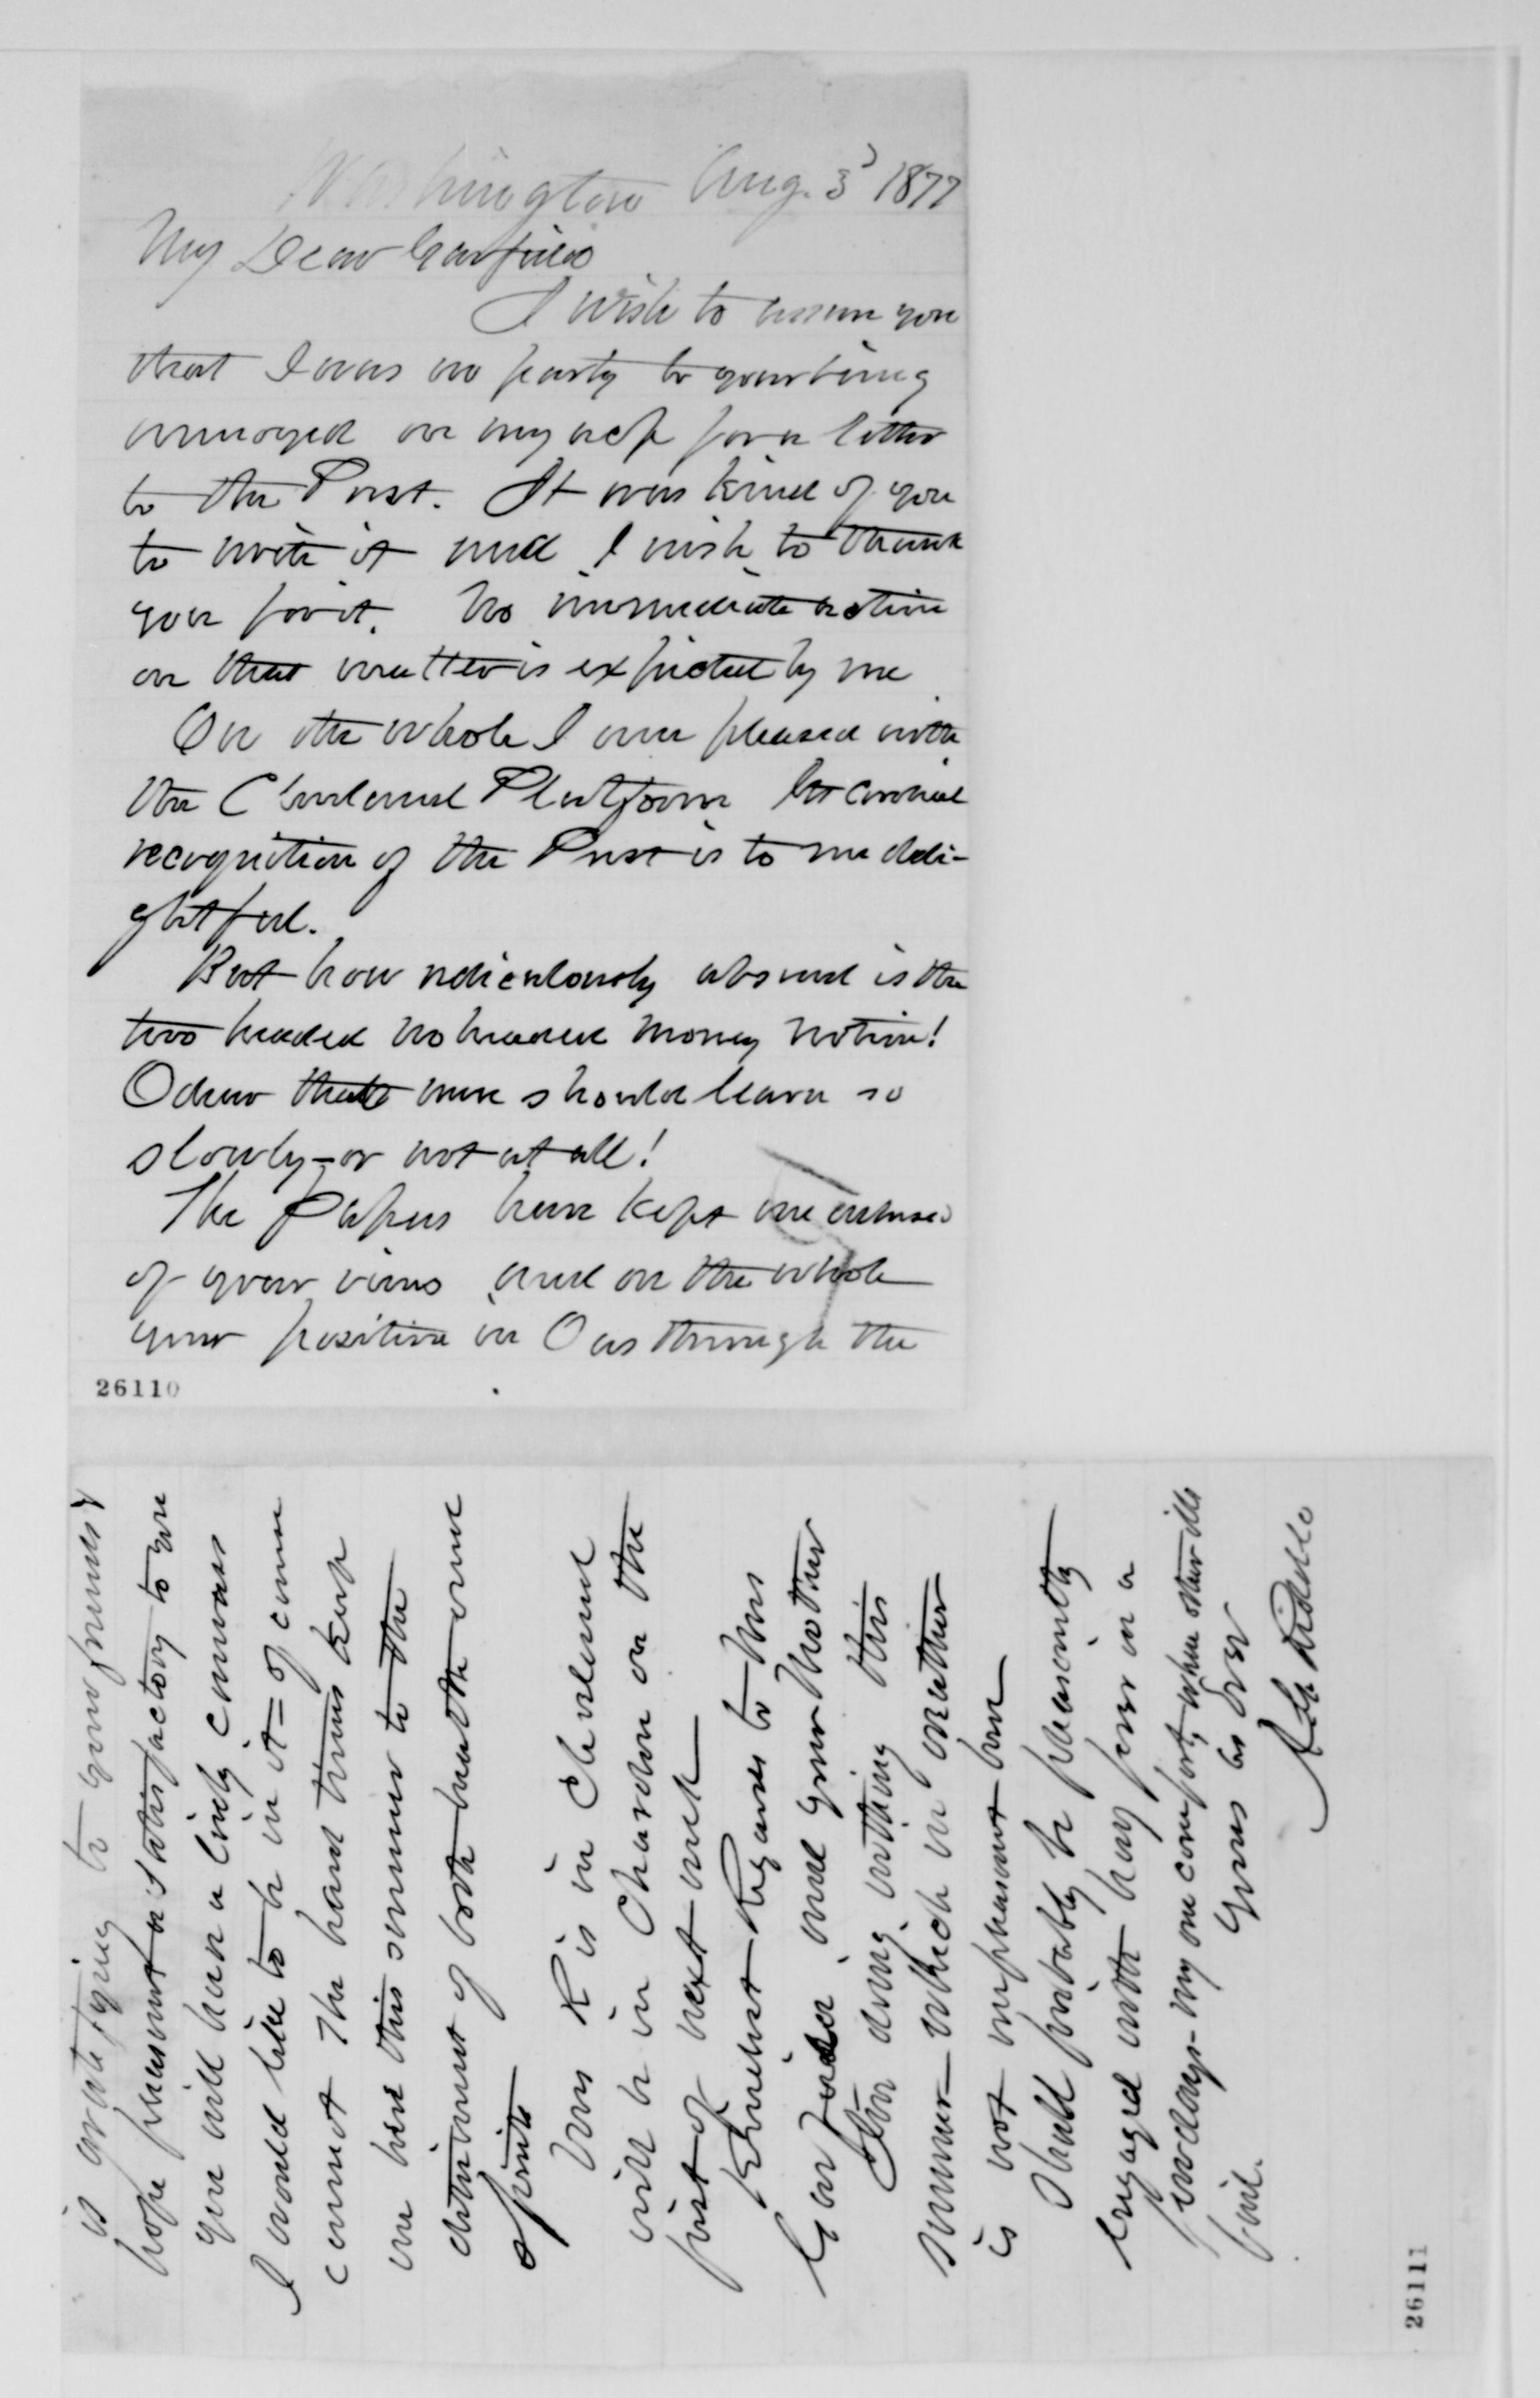 Washington Aug. 3 1877
My Dear Garfield
I wish to assure you
that I was no party to your being
annoyed on my acct for a letter
to the Prest. It was kind of you
to write it and I wish to thank
you for it. No immediate action
on that matter is expected by me
On the whole I am pleased with
the Cleveland Platform Its cordial
recognition of the Prest is to me deli-
ghtful.
But how ridiculously absurd is the
two headed no headed money notion!
O dear that men should learn so
slowly – or not at all!
The Papers have kept me
of your views and on the whole
your position in O as through the
26110
is gratifying to your friends &
hope pleasant & satisfactory to you
you will have a lively canvass
I would like to be in it = of course
cannot The hard times keep
me here this summer to the
detriment of both health and
spirits
Mrs R is in Cleveland
will be in Chardon on the
first of next week
Kindest Regards to Mrs
Garfield and your Mother
Am doing nothing this
summer – which in weather
is not unpleasant here
Shall probably be pleasantly
engaged with hay fever in a
few days – my one comfort, when other ills
fail.
Yours as Ever
A G Riddle
26111